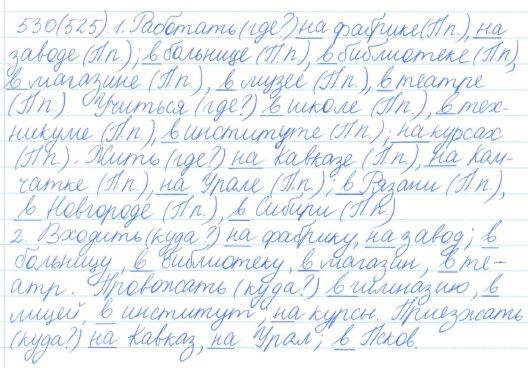 530(525). 1. Работать (где?) на фабрике (П.п.), на
заводе (П.п.); в больнице (П.п.), в библиотеке (П.п.),
в магазине (П.п.), в музее (П.п.), в театре
(П.п.) Учиться (где?) в школе (П.п.), в тех-
никуме (П.п.), в институте (П.п.); на курсах
(П.п.). Жить (где?) на Кавказе (П.п.), на Кам-
чатке (П.п.), на Урале (П.п.); в Рязани (П.п.),
в Новгороде (П.п.), в Сибири (П.п.)
2. Входить (куда?) на фабрику, на завод; в
больницу, в библиотеку, в магазин, в те-
атр. Провожать (куда?) в гимназию, в
лицей, в институт; на курсы. Приезжать
(куда?) на Кавказ, на Урал; в Псков.